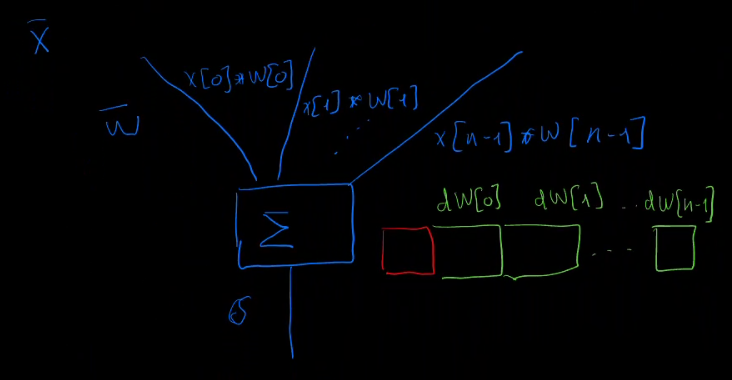 X̄
x[0]*W[0]
x[1]*W[1]
W̄
x[n-1]*W[n-1]
dW[0] dW[1] .. dW[n-1]
Σ
...
σ